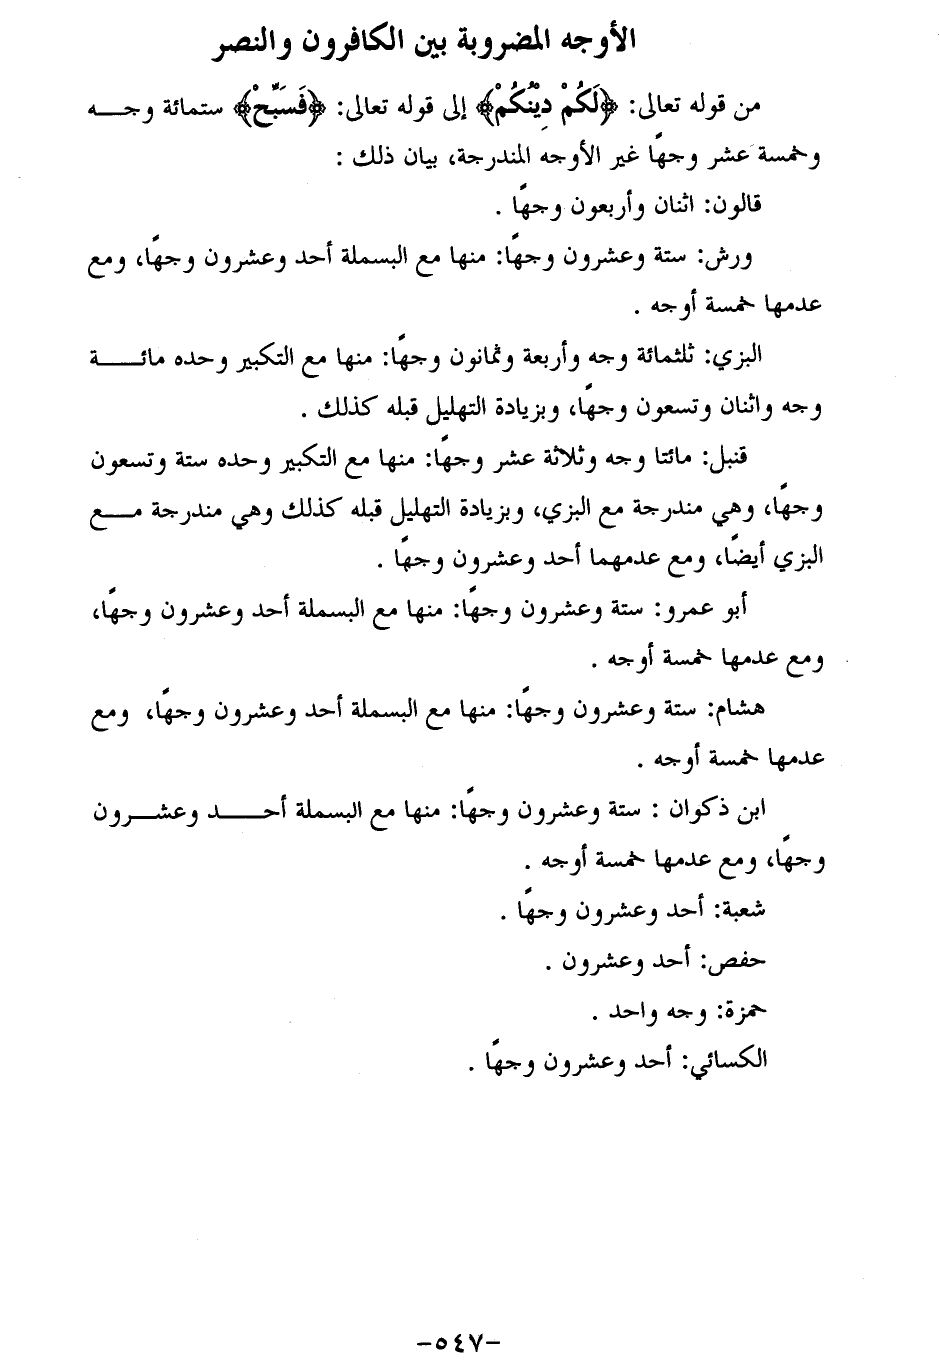 الأوجه المضروبة بين الكافرون والنصر
من قوله تعالى: ﴿لَكُمْ دِيْنُكُمْ﴾ إلى قوله تعالى: ﴿فَسَبِّحْ﴾ ستمائة وجـــه
وخمسة عشر وجهًا غير الأوجه المندرجة، بيان ذلك :
قالون: اثنان وأربعون وجهًا .
ورش: ستة وعشرون وجهًا: منها مع البسملة أحد وعشرون وجهًا، ومع
عدمها خمسة أوجه .
البزي: ثلثمائة وجه وأربعة وثمانون وجهًا: منها مع التكبير وحده مائـــة
وجه واثنان وتسعون وجهًا، وبزيادة التهليل قبله كذلك .
قنبل: مائتا وجه وثلاثة عشر وجهًا: منها مع التكبير وحده ستة وتسعون
وجهًا، وهي مندرجة مع البزي، وبزيادة التهليل قبله كذلك وهي مندرجة مـــع
البزي أيضًا، ومع عدمهما أحد وعشرون وجهًا .
أبو عمرو: ستة وعشرون وجهًا: منها مع البسملة أحد وعشرون وجهًا،
ومع عدمها خمسة أوجه .
هشام: ستة وعشرون وجهًا: منها مع البسملة أحد وعشرون وجهًا، ومع
عدمها خمسة أوجه .
ابن ذكوان : ستة وعشرون وجهًا: منها مع البسملة أحـــد وعشـــرون
وجهًا، ومع عدمها خمسة أوجه .
شعبة: أحد وعشرون وجهًا .
حفص: أحد وعشرون .
حمزة: وجه واحد .
الكسائي: أحد وعشرون وجهًا .
-٥٤٧-